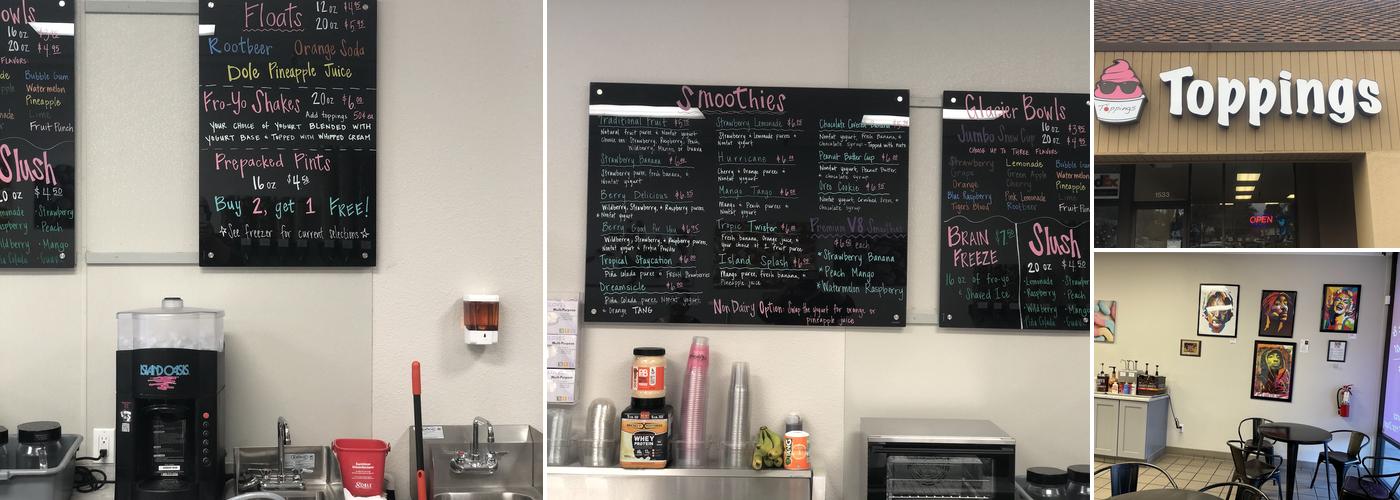 owls
16 oz
20 oz $4.95
FLAVORS:
Bubble Gum
Watermelon
Pineapple
Fruit Punch
Slush
20 oz $4.50
Strawberry
Peach
Mango
Floats 12 oz $4.95
20 oz $5.95
Rootbeer Orange Soda
Dole Pineapple Juice
Fro-Yo Shakes 20oz $6.00
Add toppings 50¢ ea
YOUR CHOICE OF YOGURT BLENDED WITH
YOGURT BASE + TOPPED WITH WHIPPED CREAM
Prepacked Pints
16 oz $4.50
Buy 2, get 1 FREE!
See freezer for current selections
ISLAND OASIS
Smoothies
Traditional Fruit
Natural fruit puree + Nonfat yogurt
Strawberry Banana
Strawberry puree, fresh banana, +
Nonfat yogurt
Berry Delicious
Wildberry, Strawberry, + Raspberry puree,
+ Nonfat yogurt
Berry Good For You
Wildberry, Strawberry, + Raspberry puree,
Nonfat yogurt + Protein Powder
Tropical Staycation
Piña Colada puree + FRESH Strawberries
Dreamsicle
Piña Colada puree, Nonfat yogurt
+ Orange TANG
Strawberry Lemonade
Strawberry + Lemonade puree +
Nonfat yogurt
Hurricane
Cherry + Orange puree +
Nonfat yogurt
Mango Tango
Mango + Peach puree +
Nonfat yogurt
Tropic Twister
Fresh banana, Orange juice +
your choice of 1 Fruit puree
Island Splash
Mango puree, fresh banana, +
Pineapple juice
Chocolate Covered Banana
Nonfat yogurt, Fresh Banana +
Chocolate Syrup - Topped with nuts
Peanut Butter Cup
Nonfat yogurt, Peanut Butter,
+ chocolate syrup
Oreo Cookie
Nonfat yogurt, Crushed Oreo, +
Chocolate syrup
Premium V8 Smoothies
each
*Strawberry Banana
*Peach Mango
*Watermelon Raspberry
Non Dairy Option: Swap the yogurt for orange or
pineapple juice
WHEY
PROTEIN
TANG
Glacier Bowls
Jumbo Snow Cup 16 oz
20 oz $4.95
CHOOSE UP TO THREE FLAVORS:
Strawberry Lemonade Bubble Gum
Grape Green Apple Watermelon
Orange Cherry Pineapple
Blue Raspberry Pink Lemonade
Tiger's Blood Rootbeer Fruit Pun
BRAIN
FREEZE
16 oz of fro-yo
+ Shaved Ice
Slush
20 oz $4.50
Lemonade
Raspberry
Wildberry
Piña Colada
Strawber
Peach
Mango
Toppings
Toppings
1533
OPEN